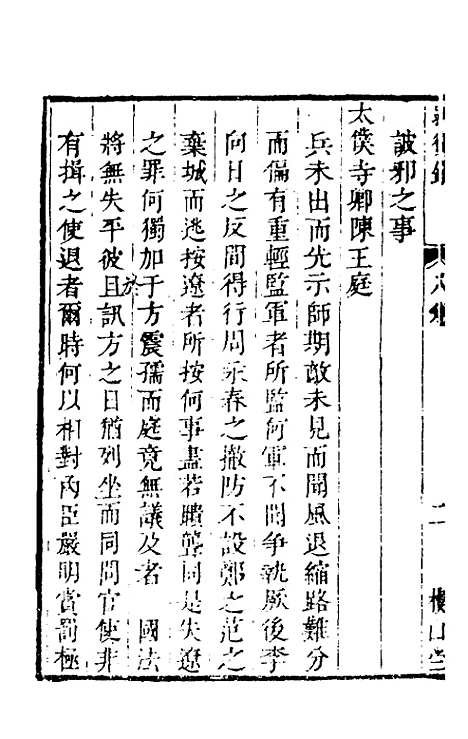 詖邪之事
太僕寺卿陳王庭
兵未出而先示師期敵未見而聞風退縮路難分
而偏有重輕監軍者所監何軍不聞爭執厥後李
向日之反間得行周永春之撤防不設鄭之范之
棄城而逃按遼者所按何事盡若瞶聾同是失遼
之罪何獨加于方震孺而庭竟無議及者 國法
於
將無失平彼且訊方之日猶列坐而同問官使非
有揖之使退者爾時何以相對內臣嚴明賞罰極
二 樓山堂